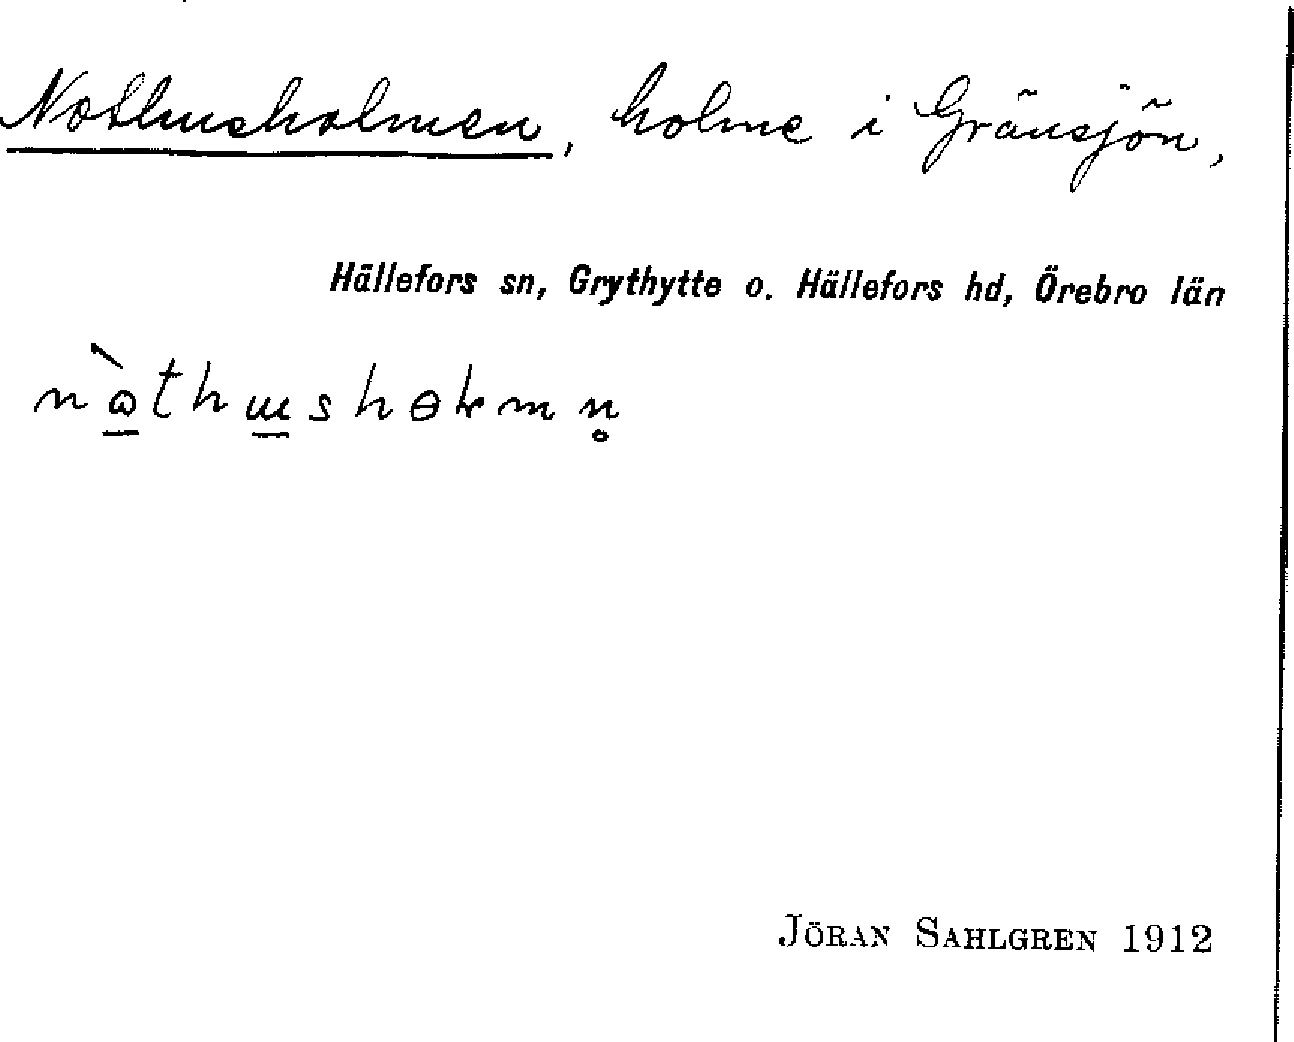 Nothusholmen, holme i Gränsjön,
Hällefors sn, Grythytte o. Hällefors hd, Örebro län
JÖRAN SAHLGREN 1912